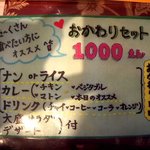 たくさん
食べたい方に
オススメ
おかわりセット
1000えん
ナン orライス
カレー チキン・ベジタブル
マトン・本日のオススメ
ドリンク(チャイ・コーヒー・コーラ・オレンジ)
大盛
デザート
付